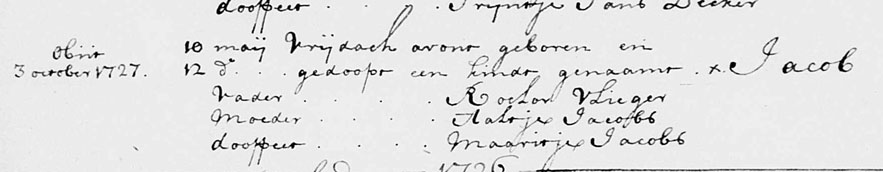 doopheet . . . . Trijntje Jans Decker
Obiit
3 october 1727.
10 maij Vrijdach avont geboren en
12 d° . . . gedoopt een kindt genaamt . x . Jacob
Vader . . . . Roelof Vlieger
Moeder . . . . Aaltje Jacobs
doopheet . . . . Maaritje Jacobs
1726